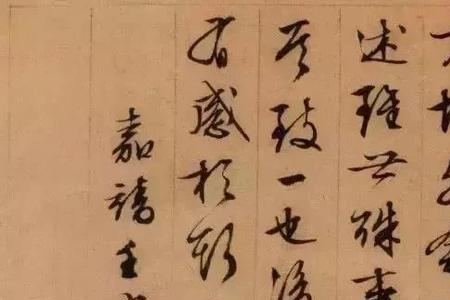 述雖世殊事
其致一也後
有感於斯
嘉靖壬